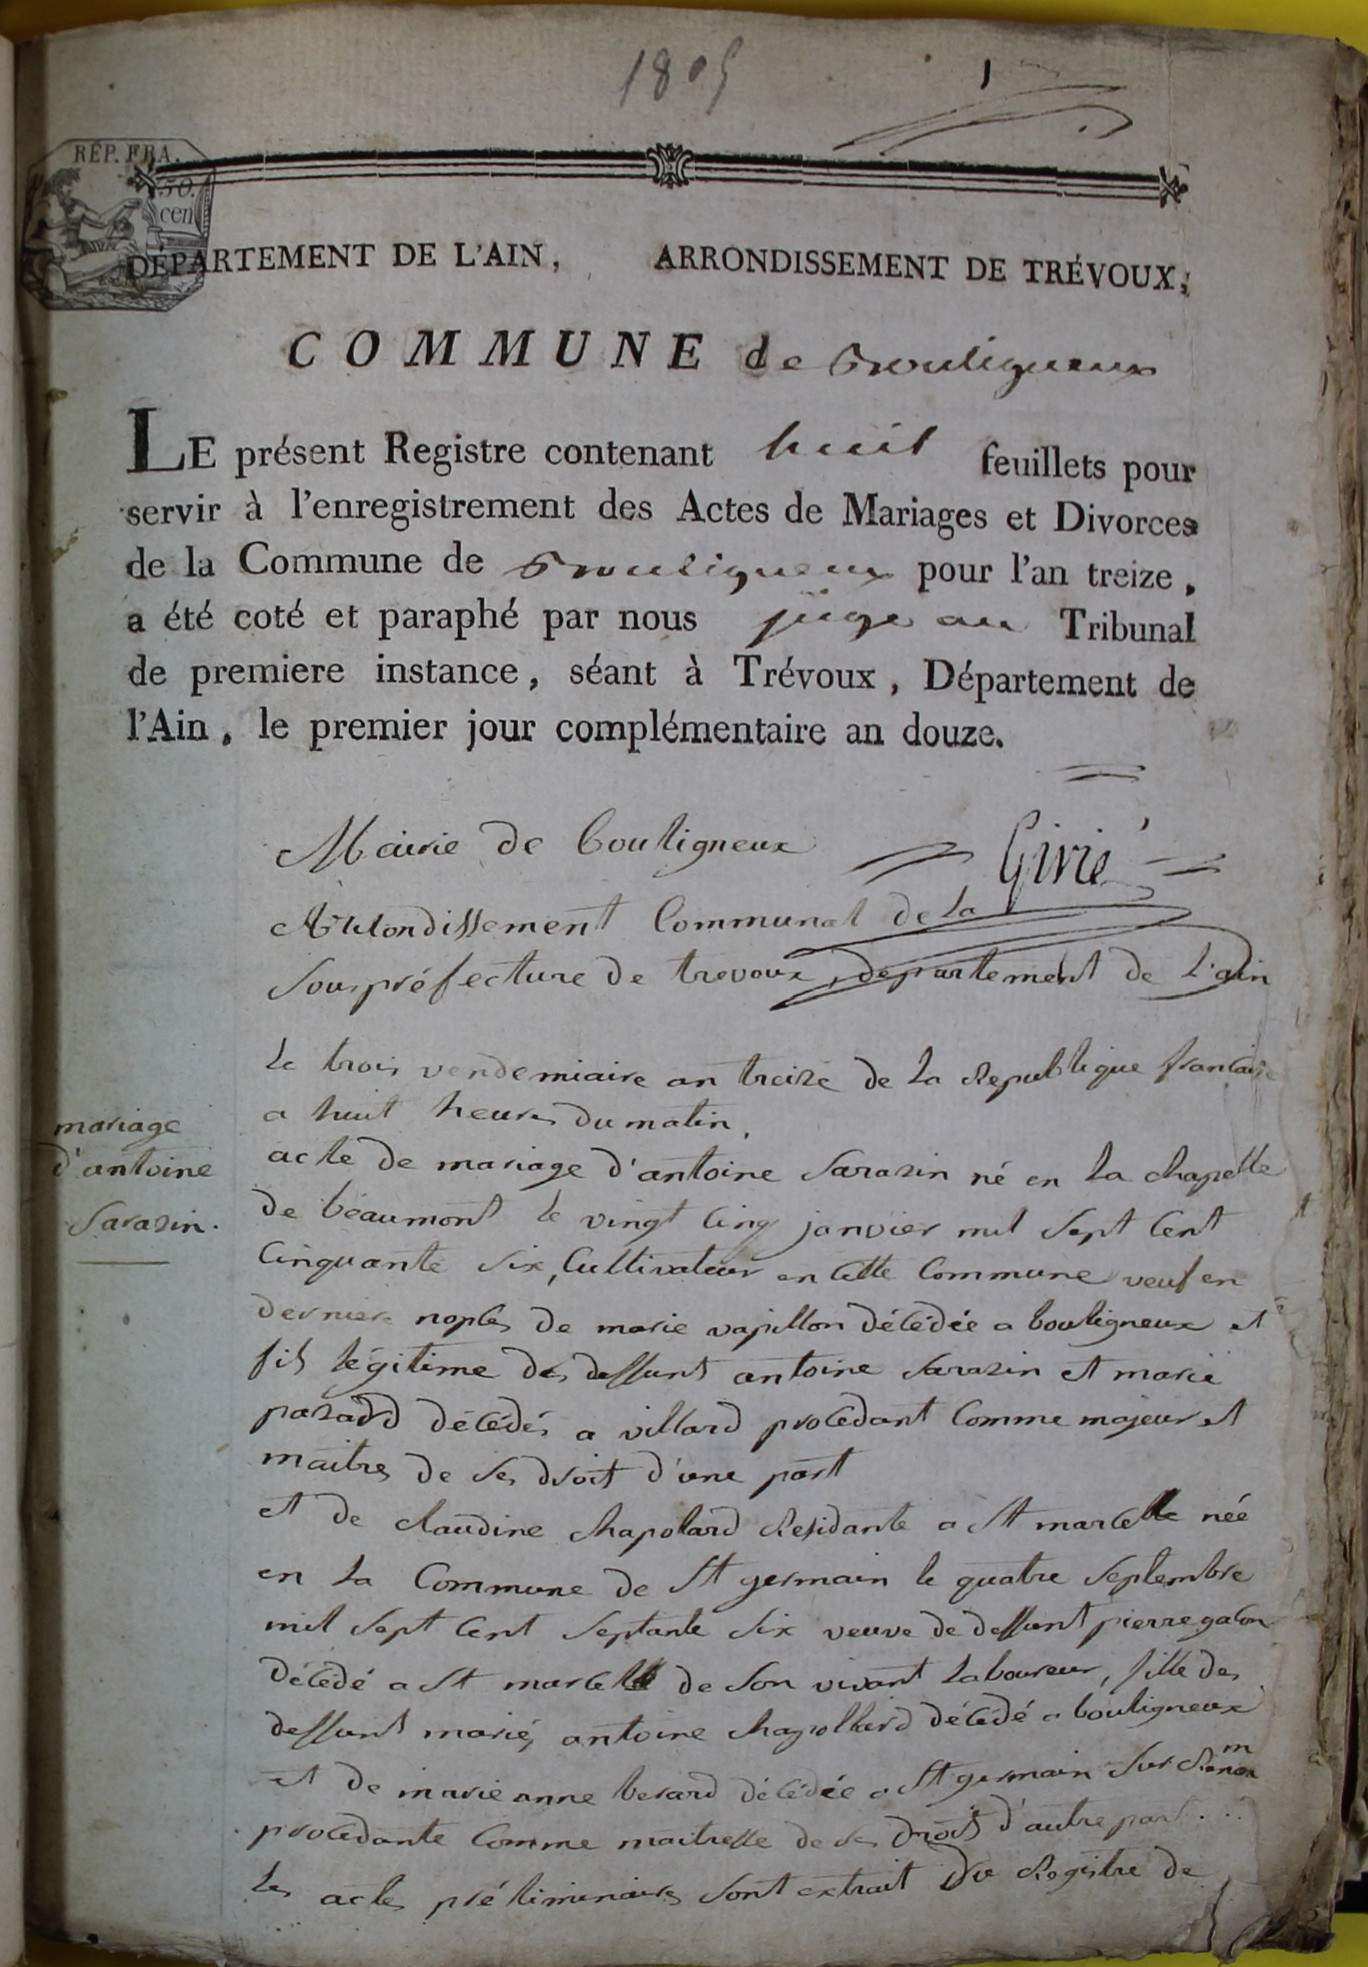 1805
1
RÉP. FRA.
50.
cen
DÉPARTEMENT DE L'AIN, ARRONDISSEMENT DE TRÉVOUX,
COMMUNE de Bouligneux
LE présent Registre contenant huit feuillets pour
servir à l'enregistrement des Actes de Mariages et Divorces
de la Commune de Bouligneux pour l'an treize,
a été coté et paraphé par nous juge au Tribunal
de premiere instance, séant à Trévoux, Département de
l'Ain, le premier jour complémentaire an douze.
Mairie de bouligneux
Givié
Arrondissement Communal de la
Souspréfecture de trevoux, departement de L'ain
Le trois vendemiaire an treize de La Republique francaise
a huit heures du matin,
mariage
d'antoine
Sarasin.
acte de mariage d'antoine Sarasin né en La chapelle
De beaumont le vingt Cinq janvier mil Sept Cent
Cinquante Six, Cultivateur en Cette Commune veuf en
derniere nopces de marie vapillon décédée a bouligneux et
fils légitime des deffunts antoine Sarasin et marie
décédés a villard procedant Comme majeur et
maitres de Ses droit d'une part
et de claudine chapolard Residante a St marcelle née
en La Commune de St germain le quatre Septembre
mil Sept Cent Septante Six veuve de deffunt pierre
décédé a St marcelle de Son vivant Laboureur, fille des
deffunts mariés antoine chapollard décédé a bouligneux
et de marie anne berard décédée a St germain Sur
procedante Comme maitresse de Ses droits d'autre part...
Les actes préliminaires Sont extrait du Registre de